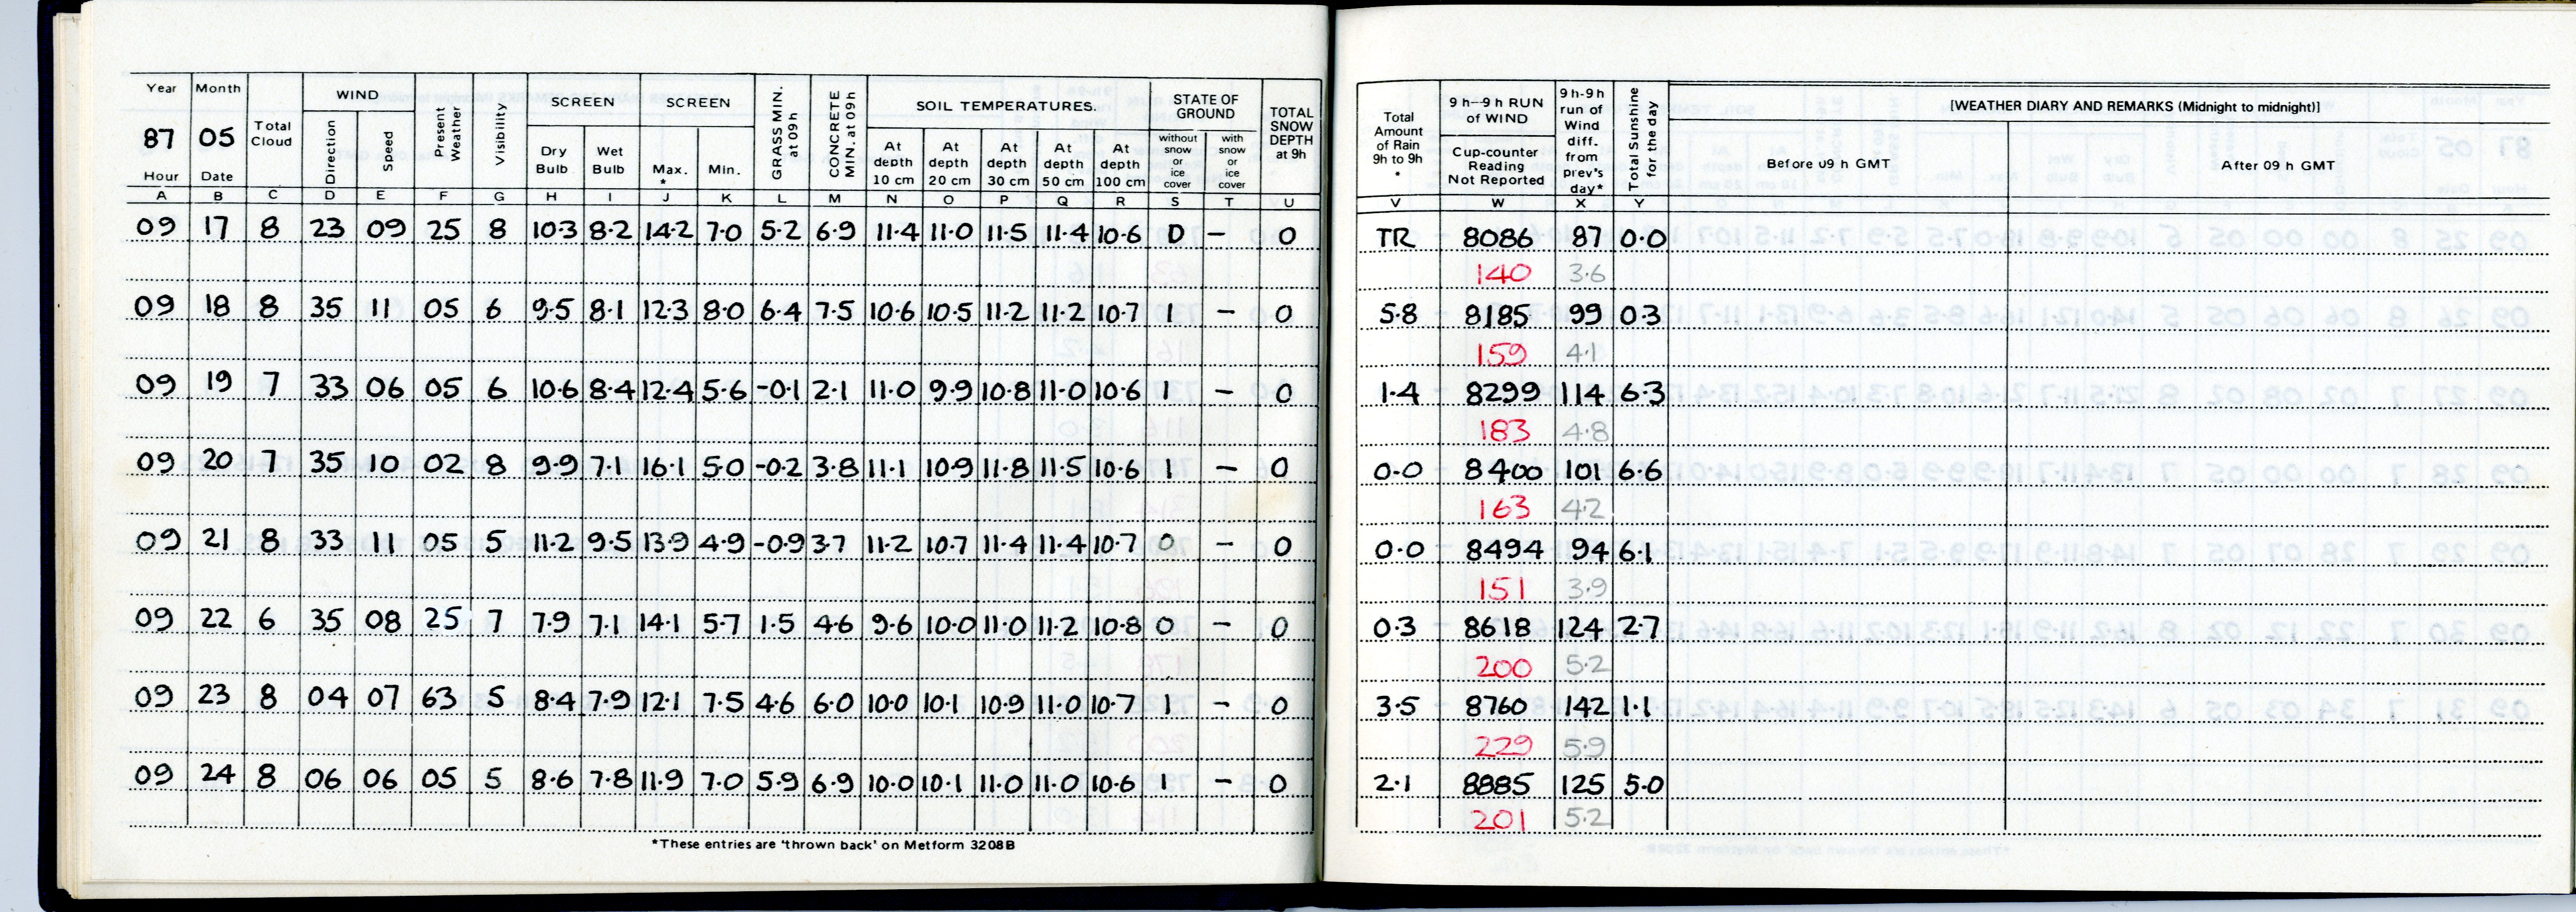 Year Month Total Cloud WIND Present Weather Visibility SCREEN SCREEN GRASS MIN. at 09h CONCRETE MIN. at 09h SOIL TEMPERATURES. STATE OF GROUND TOTAL SNOW DEPTH at 9h
87 05 Direction Speed Dry Bulb Wet Bulb Max. * Min. At depth 10 cm At depth 20 cm At depth 30 cm At depth 50 cm At depth 100 cm without snow or ice cover with snow or ice cover
Hour Date
A B C D E F G H I J K L M N O P Q R S T U
09 17 8 23 09 25 8 10.3 8.2 14.2 7.0 5.2 6.9 11.4 11.0 11.5 11.4 10.6 0 — 0
09 18 8 35 11 05 6 9.5 8.1 12.3 8.0 6.4 7.5 10.6 10.5 11.2 11.2 10.7 1 — 0
09 19 7 33 06 05 6 10.6 8.4 12.4 5.6 -0.1 2.1 11.0 9.9 10.8 11.0 10.6 1 — 0
09 20 7 35 10 02 8 9.9 7.1 16.1 5.0 -0.2 3.8 11.1 10.9 11.8 11.5 10.6 1 — 0
09 21 8 33 11 05 5 11.2 9.5 13.9 4.9 -0.9 3.7 11.2 10.7 11.4 11.4 10.7 0 — 0
09 22 6 35 08 25 7 7.9 7.1 14.1 5.7 1.5 4.6 9.6 10.0 11.0 11.2 10.8 0 — 0
09 23 8 04 07 63 5 8.4 7.9 12.1 7.5 4.6 6.0 10.0 10.1 10.9 11.0 10.7 1 — 0
09 24 8 06 06 05 5 8.6 7.8 11.9 7.0 5.9 6.9 10.0 10.1 11.0 11.0 10.6 1 — 0
*These entries are 'thrown back' on Metform 3208B
Total Amount of Rain 9h to 9h * 9 h—9 h RUN of WIND Cup-counter Reading Not Reported 9 h-9 h run of Wind diff. from prev's day* Total Sunshine for the day [WEATHER DIARY AND REMARKS (Midnight to midnight)]
Before 09 h GMT After 09 h GMT
V W X Y
TR 8086 87 0.0
140 3.6
5.8 8185 99 0.3
159 4.1
1.4 8299 114 6.3
183 4.8
0.0 8400 101 6.6
163 4.2
0.0 8494 94 6.1
151 3.9
0.3 8618 124 2.7
200 5.2
3.5 8760 142 1.1
229 5.9
2.1 8885 125 5.0
201 5.2